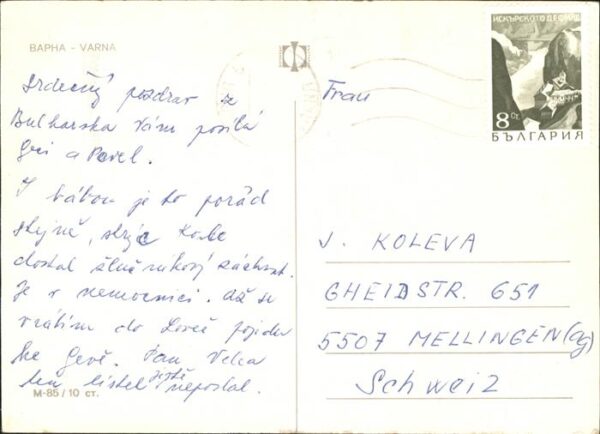 ВАРНА - VARNA
Srdečný pozdrav z
Bulharska Vám posílá
Geri a Pavel.
S bábou je to pořád
stejné, strýc Kole
dostal žlučníkový záchvat.
Je v nemocnici. Až se
vrátím do Loveč pojedu
ke Gevě. Pan Velea
ten lístek ještě neposlal.
М-85/10 ст.
Frau
J. KOLEVA
GHEIDSTR. 651
5507 MELLINGEN (Ag)
Schweiz
ИСКЪРСКОТО ДЕФИЛЕ
8 Ст.
БЪЛГАРИЯ